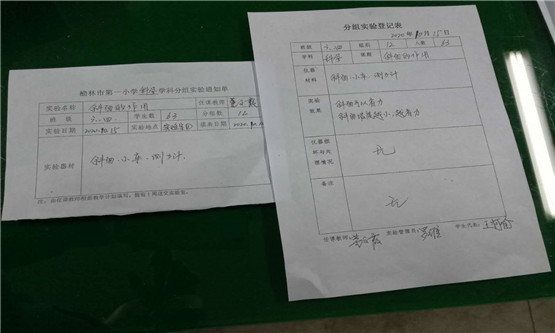 榆林市第一小学科学学科分组实验通知单
实验名称 斜面的作用 任课教师
班级 三.四 学生数 63 分组数 12
实验日期 2020.10.15 实验地点 实验室 送来日期 2020.10
实验器材 斜面、小车、测力计
分组实验登记表
2020年10月15日
班级 三.四 组数 12 人数 63
学科 科学 课题 斜面的作用
仪器材料 斜面、小车、测力计
实验效果 斜面可以省力
斜面坡度越小,越省力
仪器损坏与处理情况 无
备注 无
任课教师: 实验管理员: 学生代表: